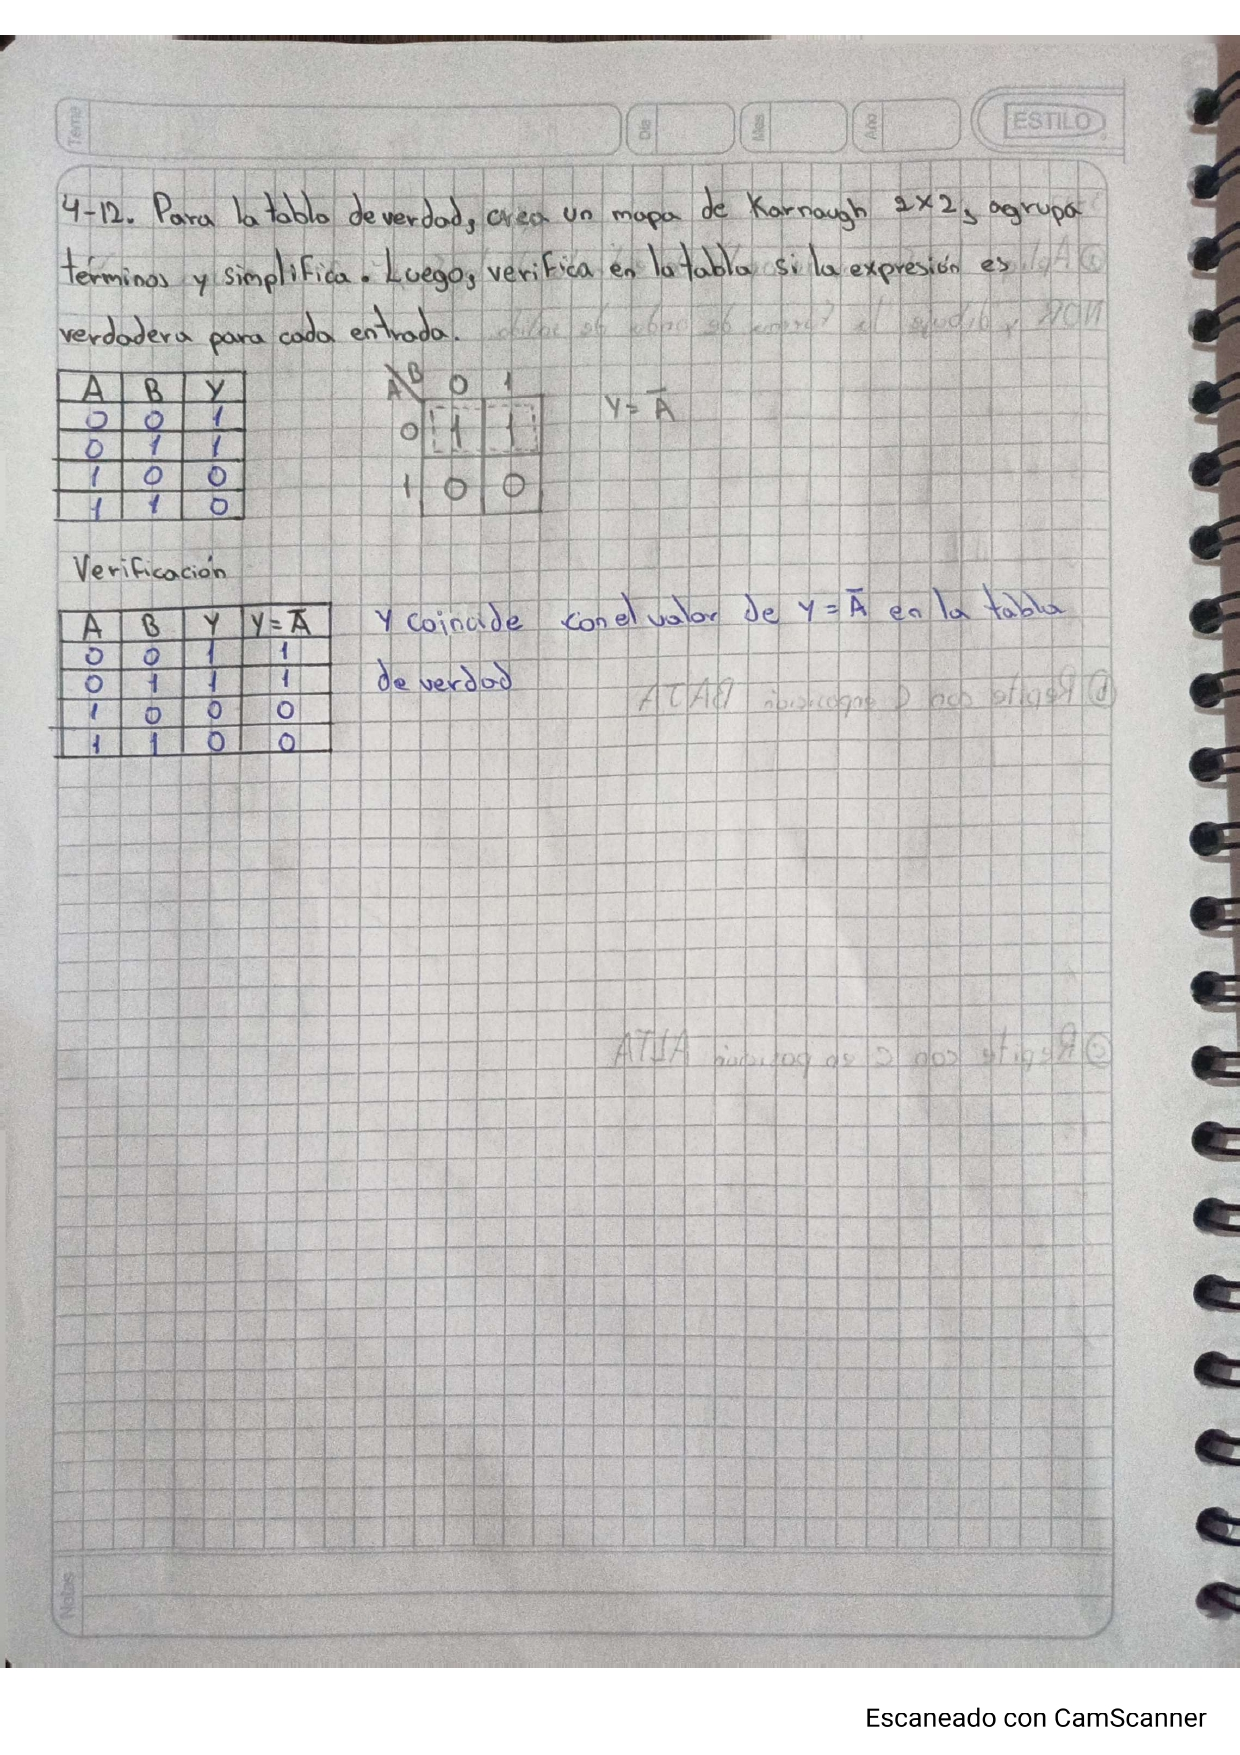 Tema Día Mes Año ESTILO
4-12. Para la tabla de verdad, crea un mapa de Karnaugh 2x2, agrupa
términos y simplifica. Luego, verifica en la tabla si la expresión es
verdadera para cada entrada.
A B Y
0 0 1
0 1 1
1 0 0
1 1 0
A\B 0 1
0 1 1
1 0 0
Y = A̅
Verificación
A B Y Y=A̅
0 0 1 1
0 1 1 1
1 0 0 0
1 1 0 0
Y coincide con el valor de Y = A̅ en la tabla
de verdad
Notas
Escaneado con CamScanner